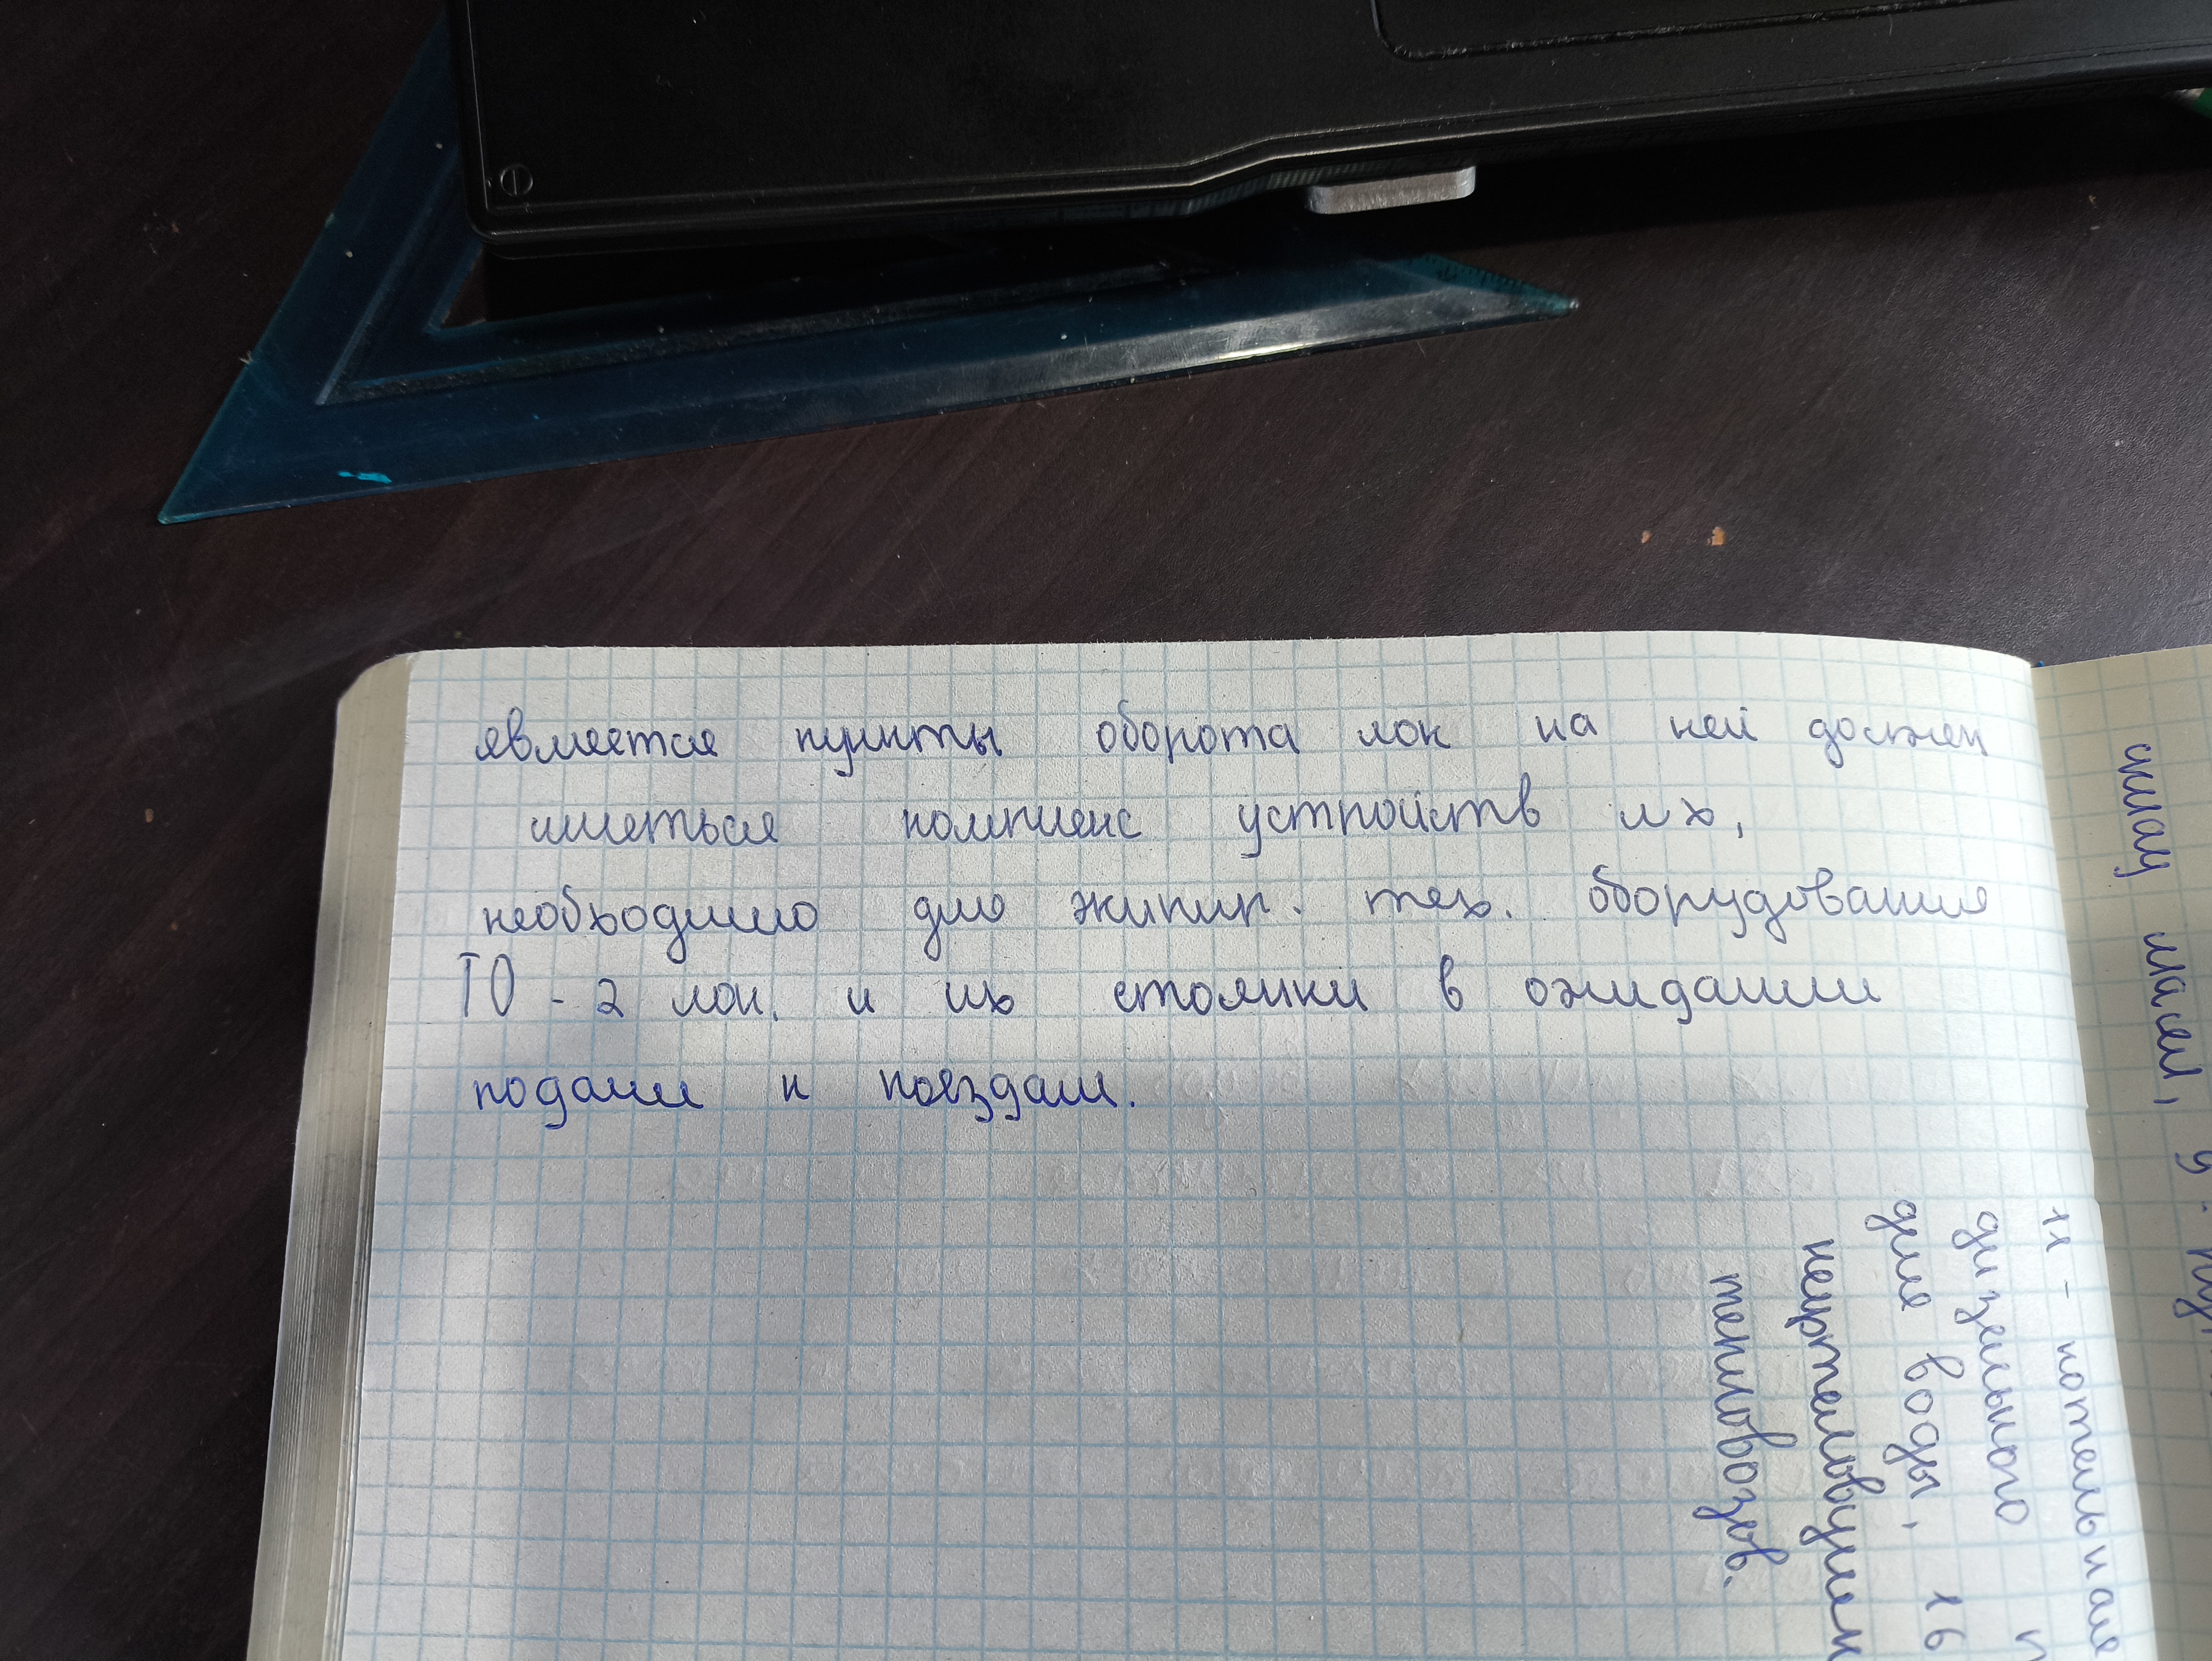 является пункты оборота лок на ней должен
иметься комплекс устройств лх,
необходимо для экипир. тех. оборудования
ТО - 2 лок. и их стоянки в ожидании
подачи к поездам.
11 - котельная
дизельного
для воды, 16
нефтеловушек
тепловозов.
складу масел, 9.